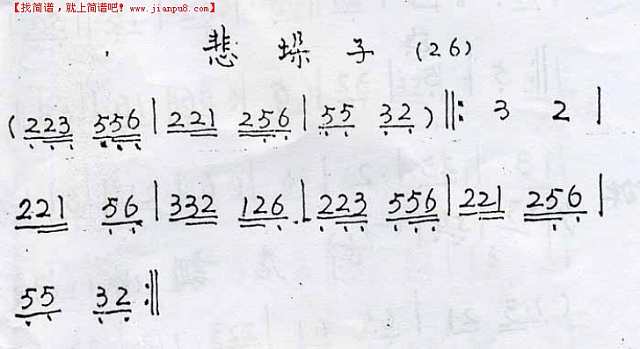 【找简谱，就上简谱吧！www.jianpu8.com】
悲 垛 子 (26)
(223 556 | 221 256 | 55 32) ‖: 3 2 |
221 56 | 332 126 | 223 556 | 221 256 |
55 32 :‖